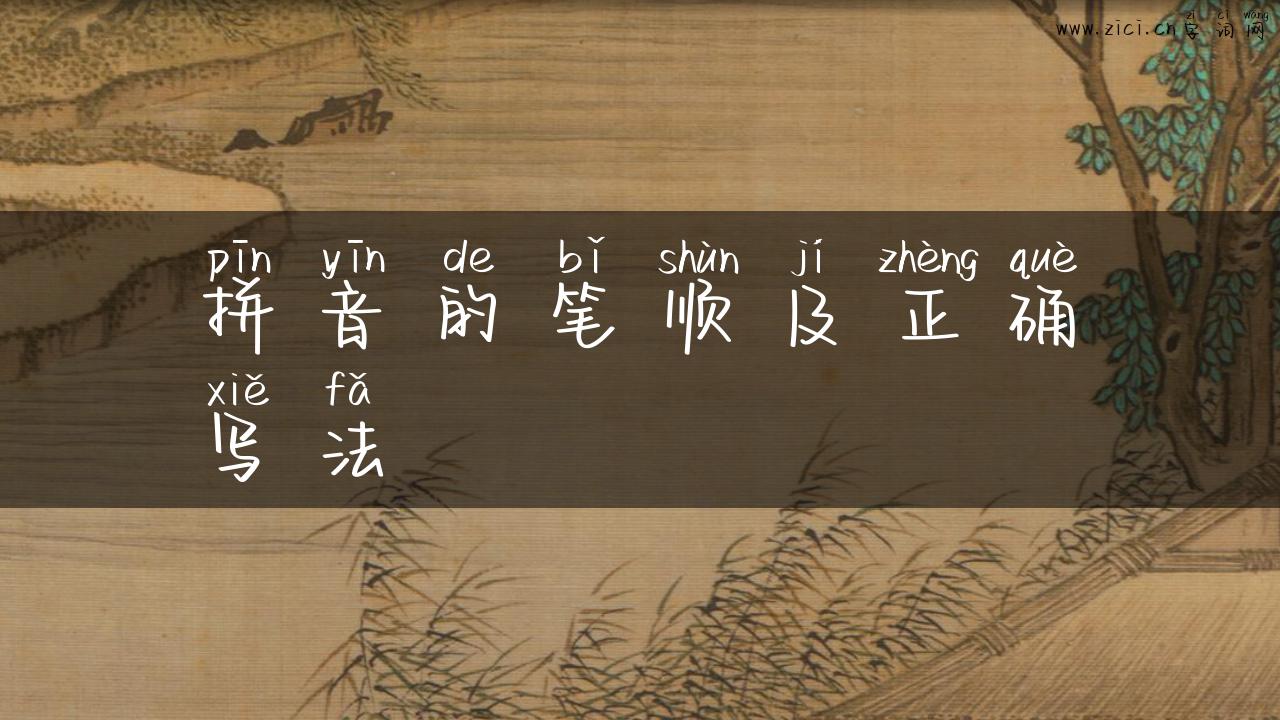 zì cí wǎng
www.zici.cn字词网
pīn yīn de bǐ shùn jí zhèng què
拼音的笔顺及正确
xiě fǎ
写法